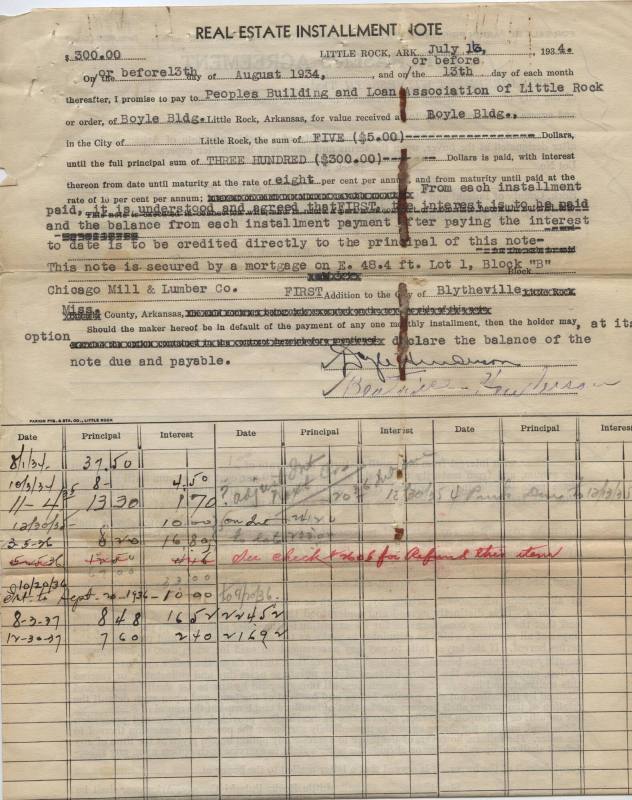 REAL ESTATE INSTALLMENT NOTE
$ 300.00 LITTLE ROCK, ARK. July 13, 1934.
or before
On the or before 13th day of August 1934, and on the 13th day of each month
thereafter, I promise to pay to Peoples Building and Loan Association of Little Rock
or order, of Boyle Bldg. Little Rock, Arkansas, for value received at Boyle Bldg.,
in the City of Little Rock, the sum of FIVE ($5.00)---------------- Dollars,
until the full principal sum of THREE HUNDRED ($300.00)------- Dollars is paid, with interest
thereon from date until maturity at the rate of eight per cent per annum, and from maturity until paid at the
rate of 10 per cent per annum; From each installment
paid, it is understood and agreed that FIRST, the interest is to be paid
and the balance from each installment payment after paying the interest
to date is to be credited directly to the principal of this note-
This note is secured by a mortgage on E. 48.4 ft. Lot 1, Block "B"
Block
Chicago Mill & Lumber Co. FIRST Addition to the City of Blytheville
Miss. County, Arkansas,
Should the maker hereof be in default of the payment of any one monthly installment, then the holder may, at its
option declare the balance of the
note due and payable.
PARKIN PTG. & STA. CO., LITTLE ROCK
Date Principal Interest Date Principal Interest Date Principal Interest
8/1/34. 37.50
10/3/34 8- 4.50
11-4 35 13 30 1 70
12/30/35 - 10 00
3-5-36 8 20 16 80
5-25-36 See check for Refund this item
10/20/36 33 00
Int. to Sept. 20-1936- 10 00 to 9/20/36.
8-3-37 8 48 16 52 224 52
12-30-37 7 60 2 40 216 92